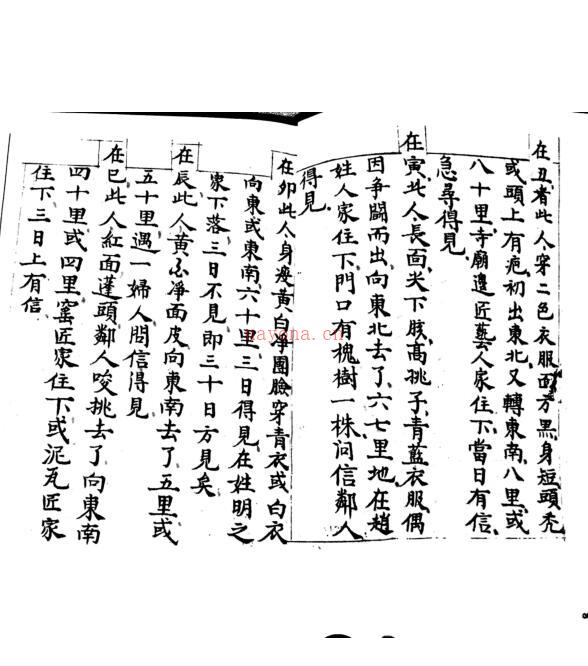 在丑者此人穿二色衣服面方黑身短頭秃
或頭上有疤初出東北又轉東南八里或
八十里寺廟邊匠藝人家住下當日有信
急尋得見
在寅此人長面尖下肢高挑子青藍衣服偶
因爭鬪而出向東北去了六七里地在趙
姓人家住下門口有槐樹一株问信鄰人
得見
在卯此人身瘦黃白凈團臉穿青衣或白衣
向東或東南六十里三日得見在姓明之
家下落三日不見即三十日方見矣
在辰此人黃凈面皮向東南去了五里或
五十里遇一婦人問信得見
在巳此人紅面蓬頭鄰人唆挑去了向東南
四十里或四里窑匠家住下或泥瓦匠家
住下三日上有信